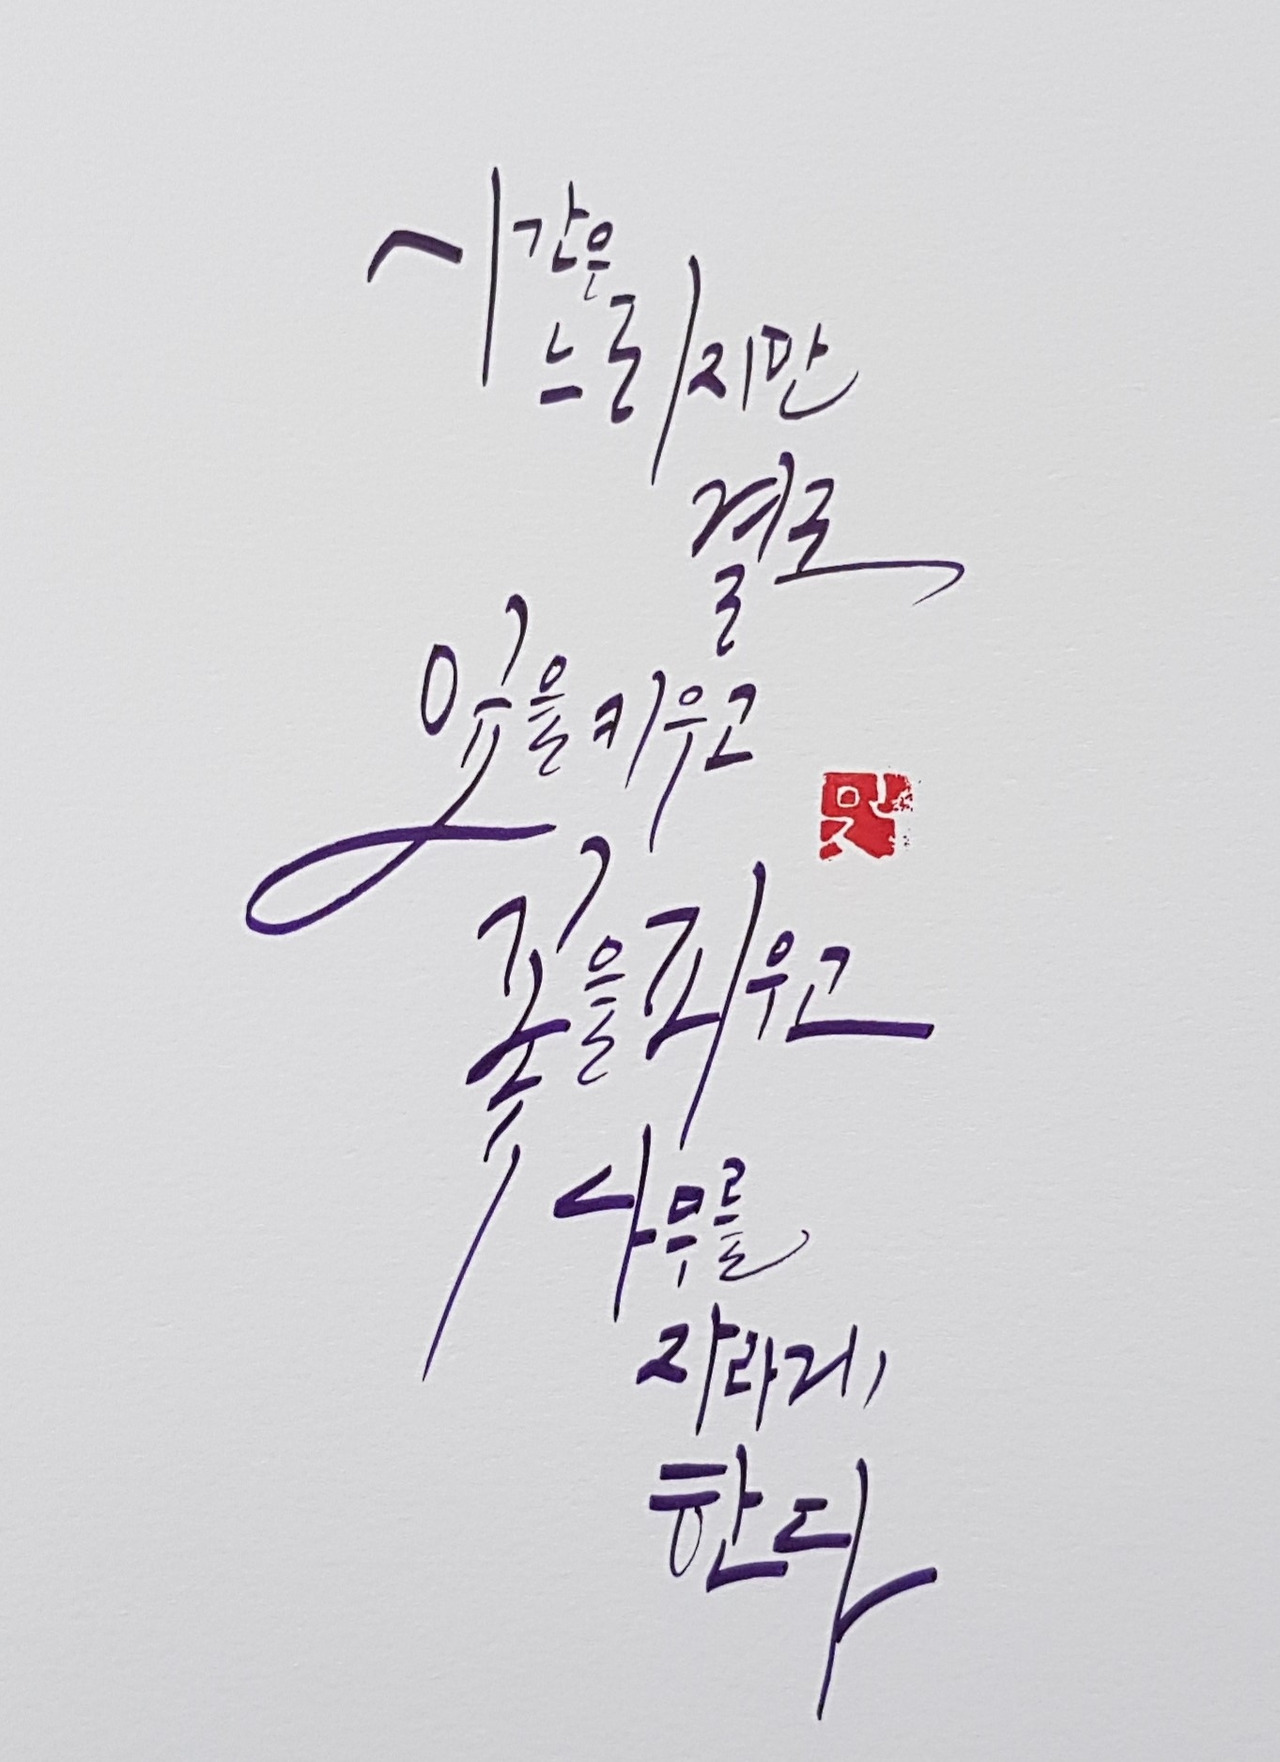 시간은
느리지만
결로
잎을 키우고
꽃을 피우고
나무를
자라게
한다